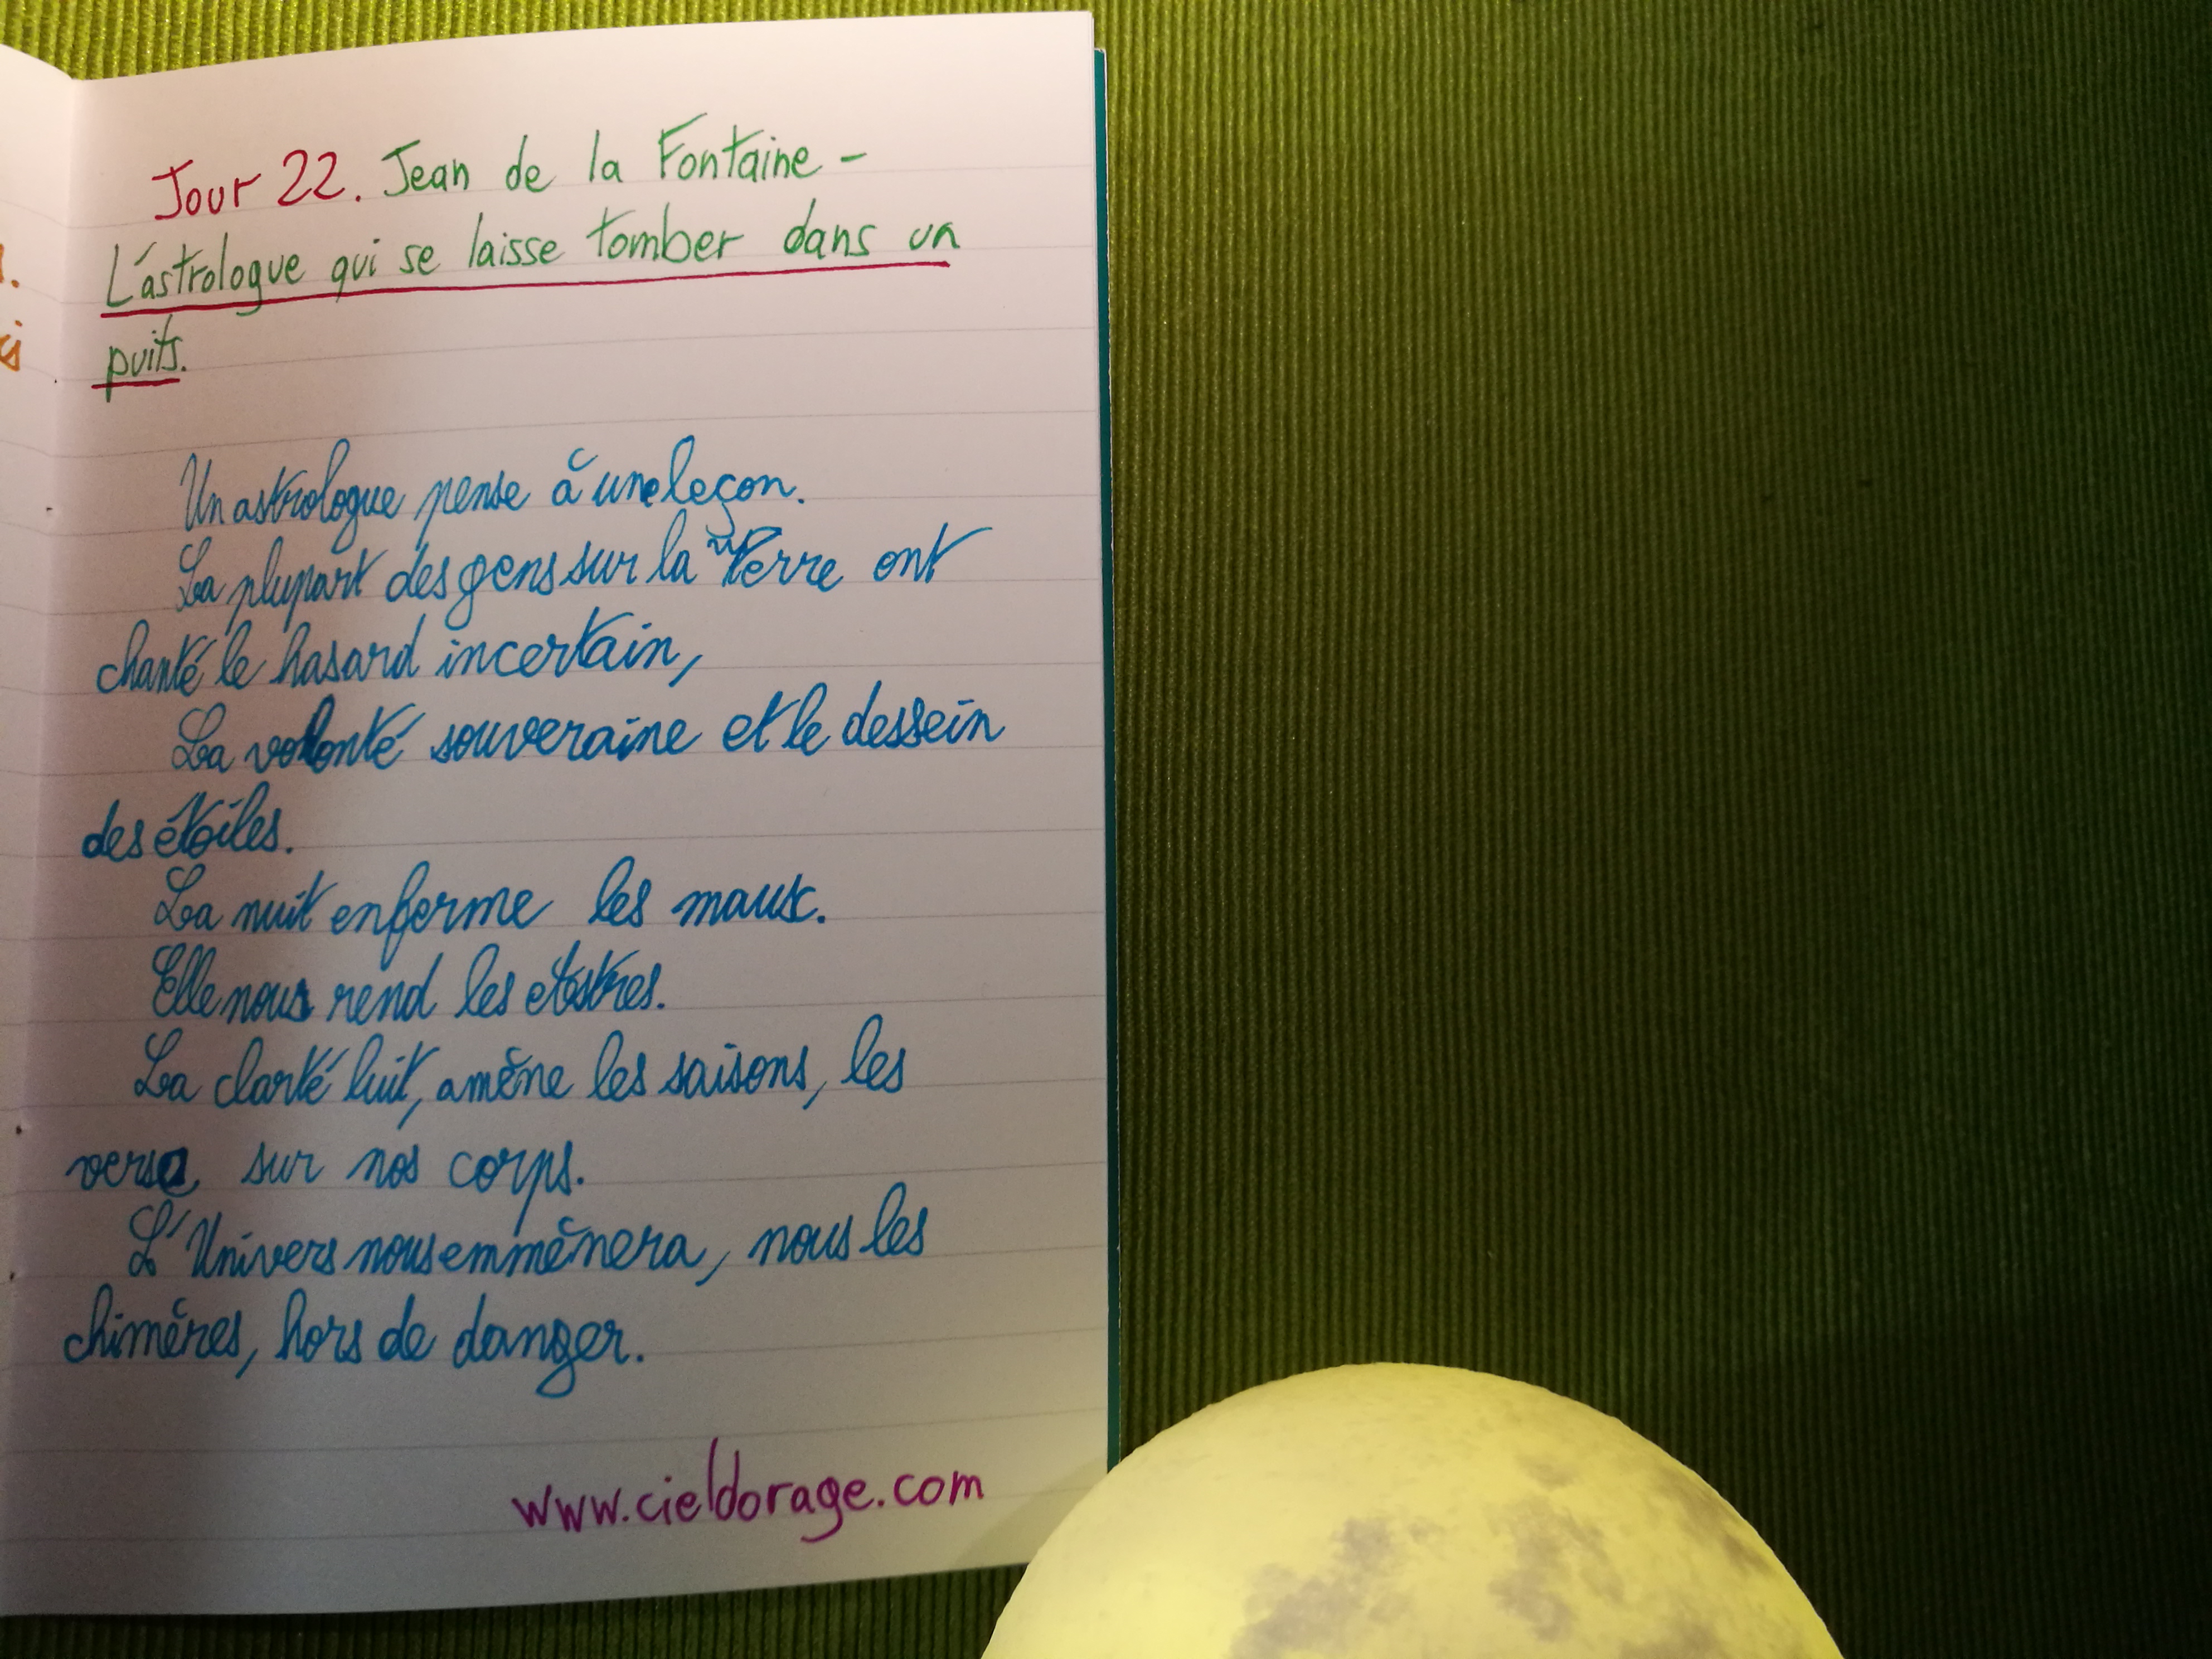 Jour 22. Jean de la Fontaine -
L'astrologue qui se laisse tomber dans un
puits.
Un astrologue pense à une leçon.
La plupart des gens sur la Terre ont
chanté le hasard incertain,
La volonté souveraine et le dessein
des étoiles.
La nuit enferme les maux.
Elle nous rend les
La clarté luit, amène les saisons, les
verse sur nos corps.
L'Univers nous emmènera, nous les
chimères, hors de danger.
www.cieldorage.com